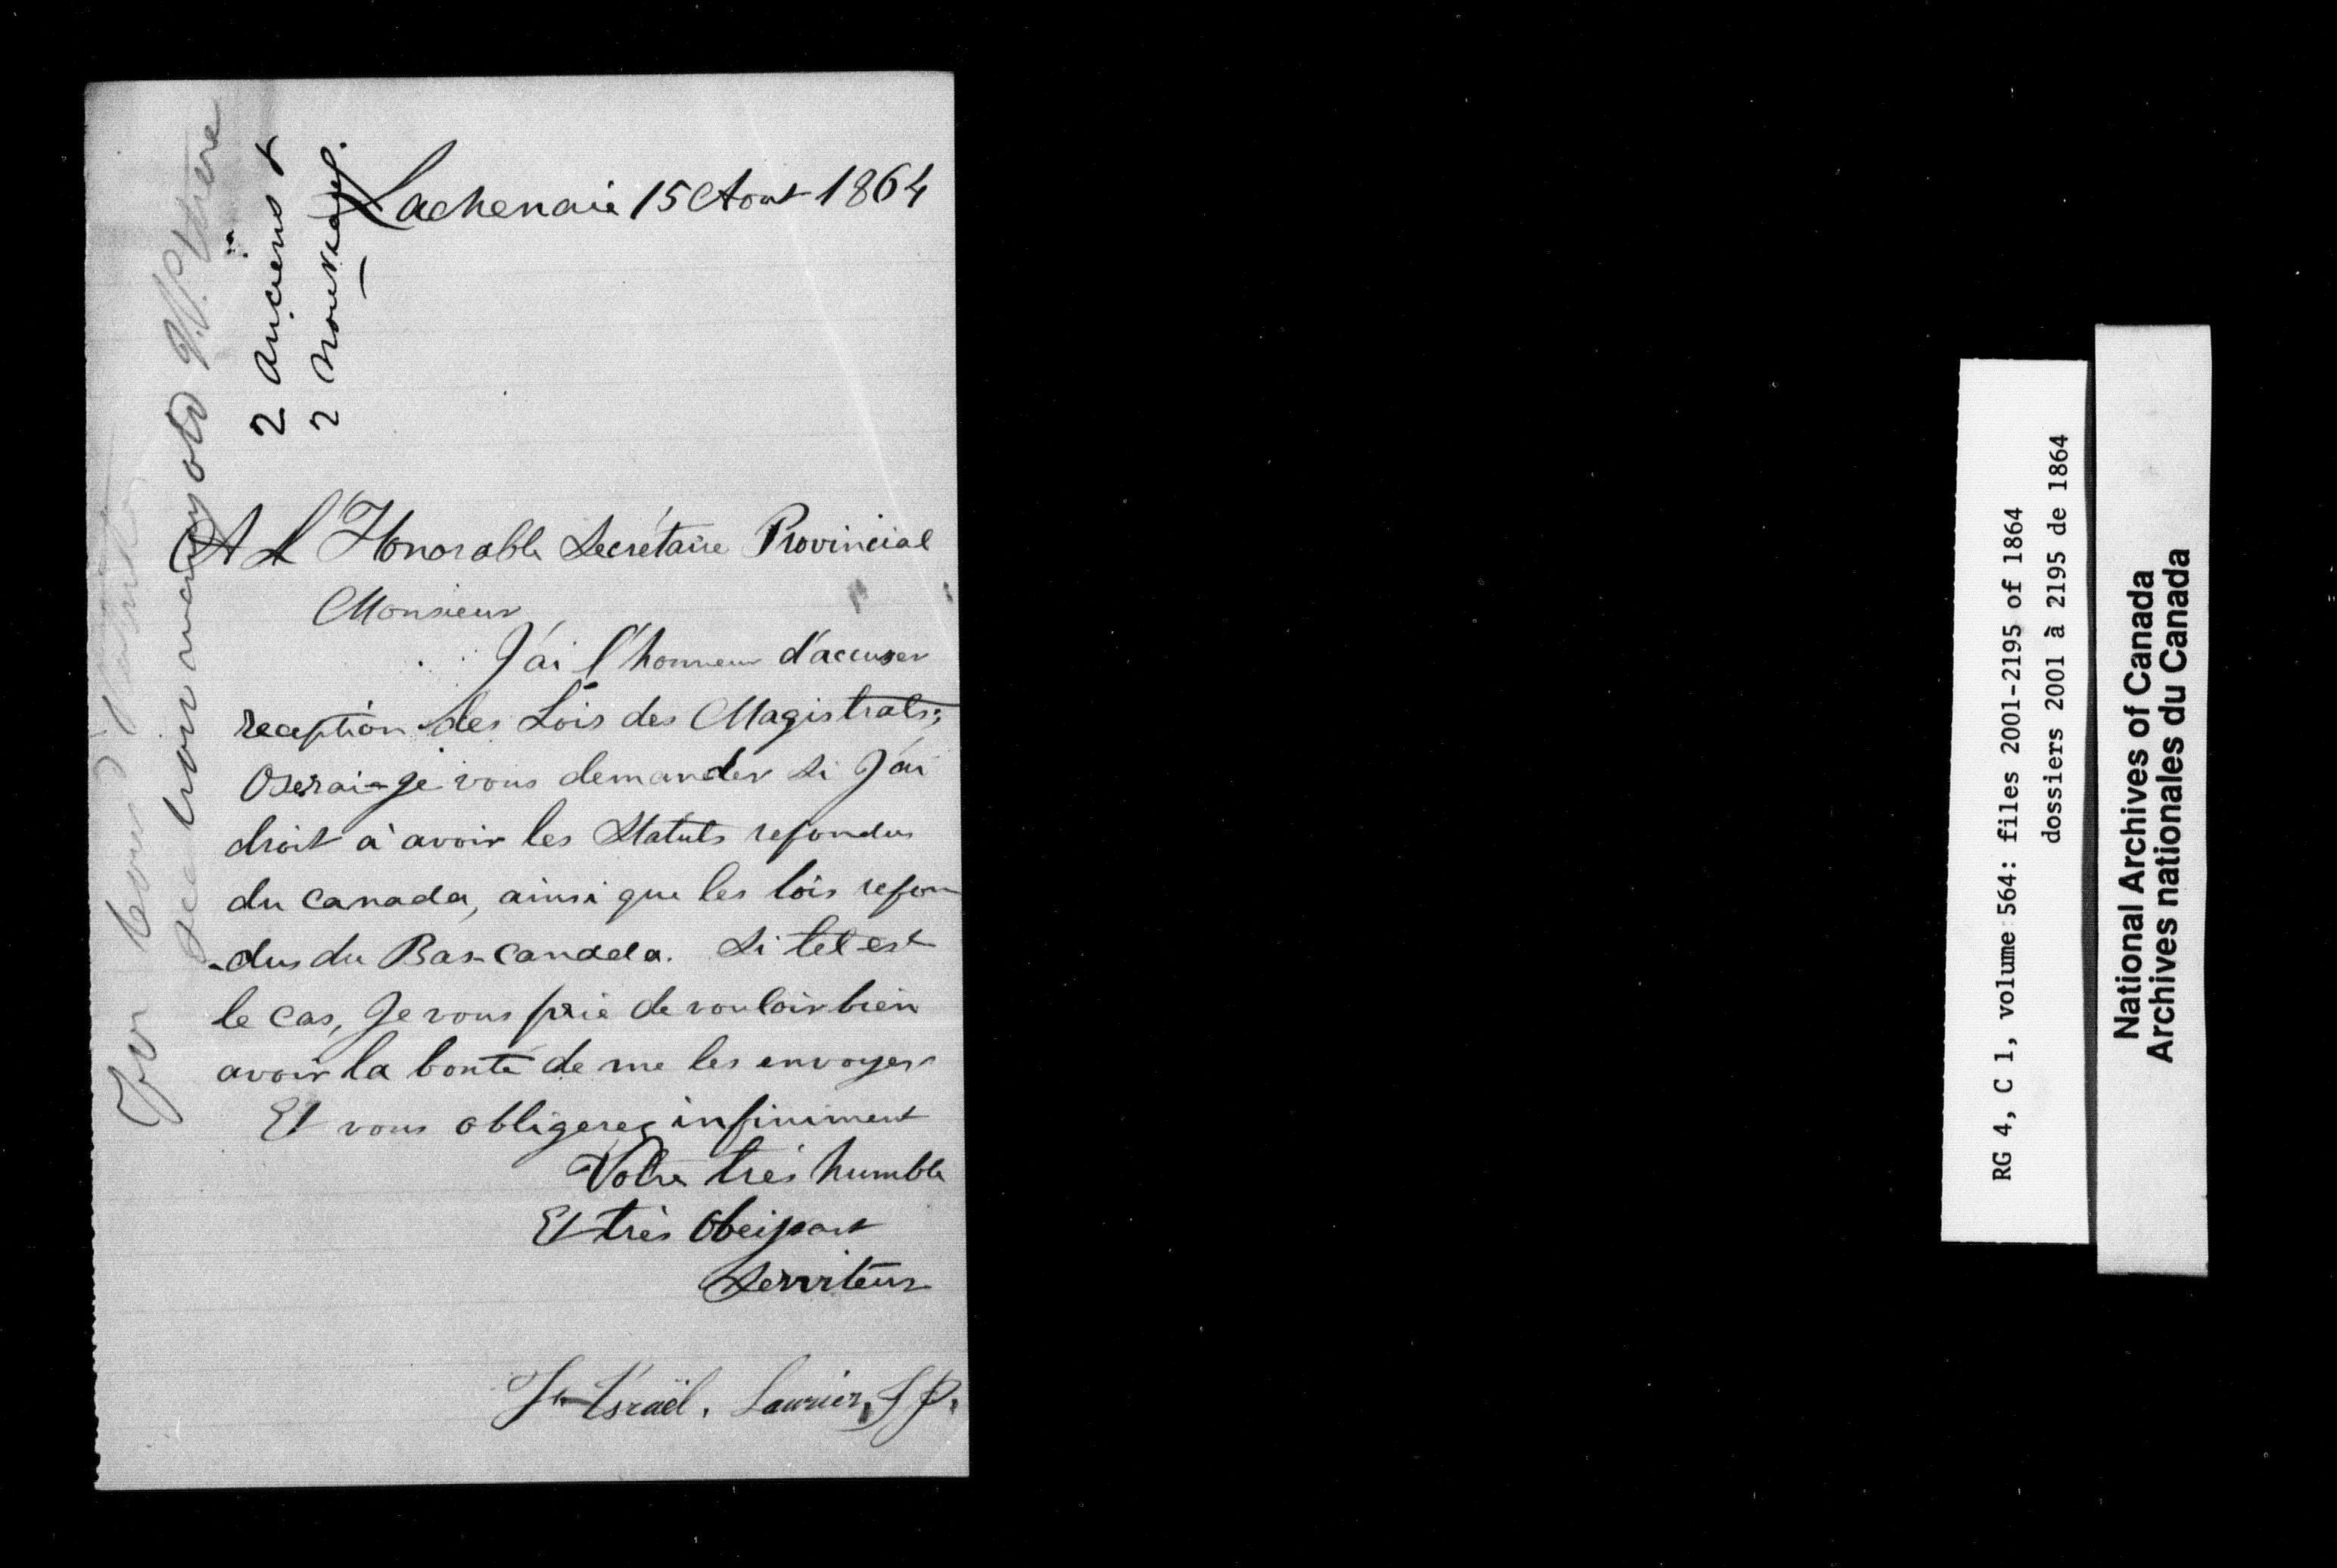 Lachenaie 15 Aout 1864
2 anciens &
2 nouveaux.
A L'Honorable Secrétaire Provincial
Monsieur
J'ai l'honneur d'accuser
reception des Lois des Magistrats;
Oserai-je vous demander si J'ai
droit à avoir les Statuts refondus
du Canada, ainsi que les lois refon
-dus du Bas-Canada. Si tel est
le cas, Je vous prie de vouloir bien
avoir la bonté de me les envoyer
Et vous obligerez infiniment
Votre très humble
Et très Obeissant
Serviteur
Israël. Laurier, J P.
how many old
RG 4, C 1, volume 564: files 2001-2195 of 1864
dossiers 2001 à 2195 de 1864
National Archives of Canada
Archives nationales du Canada